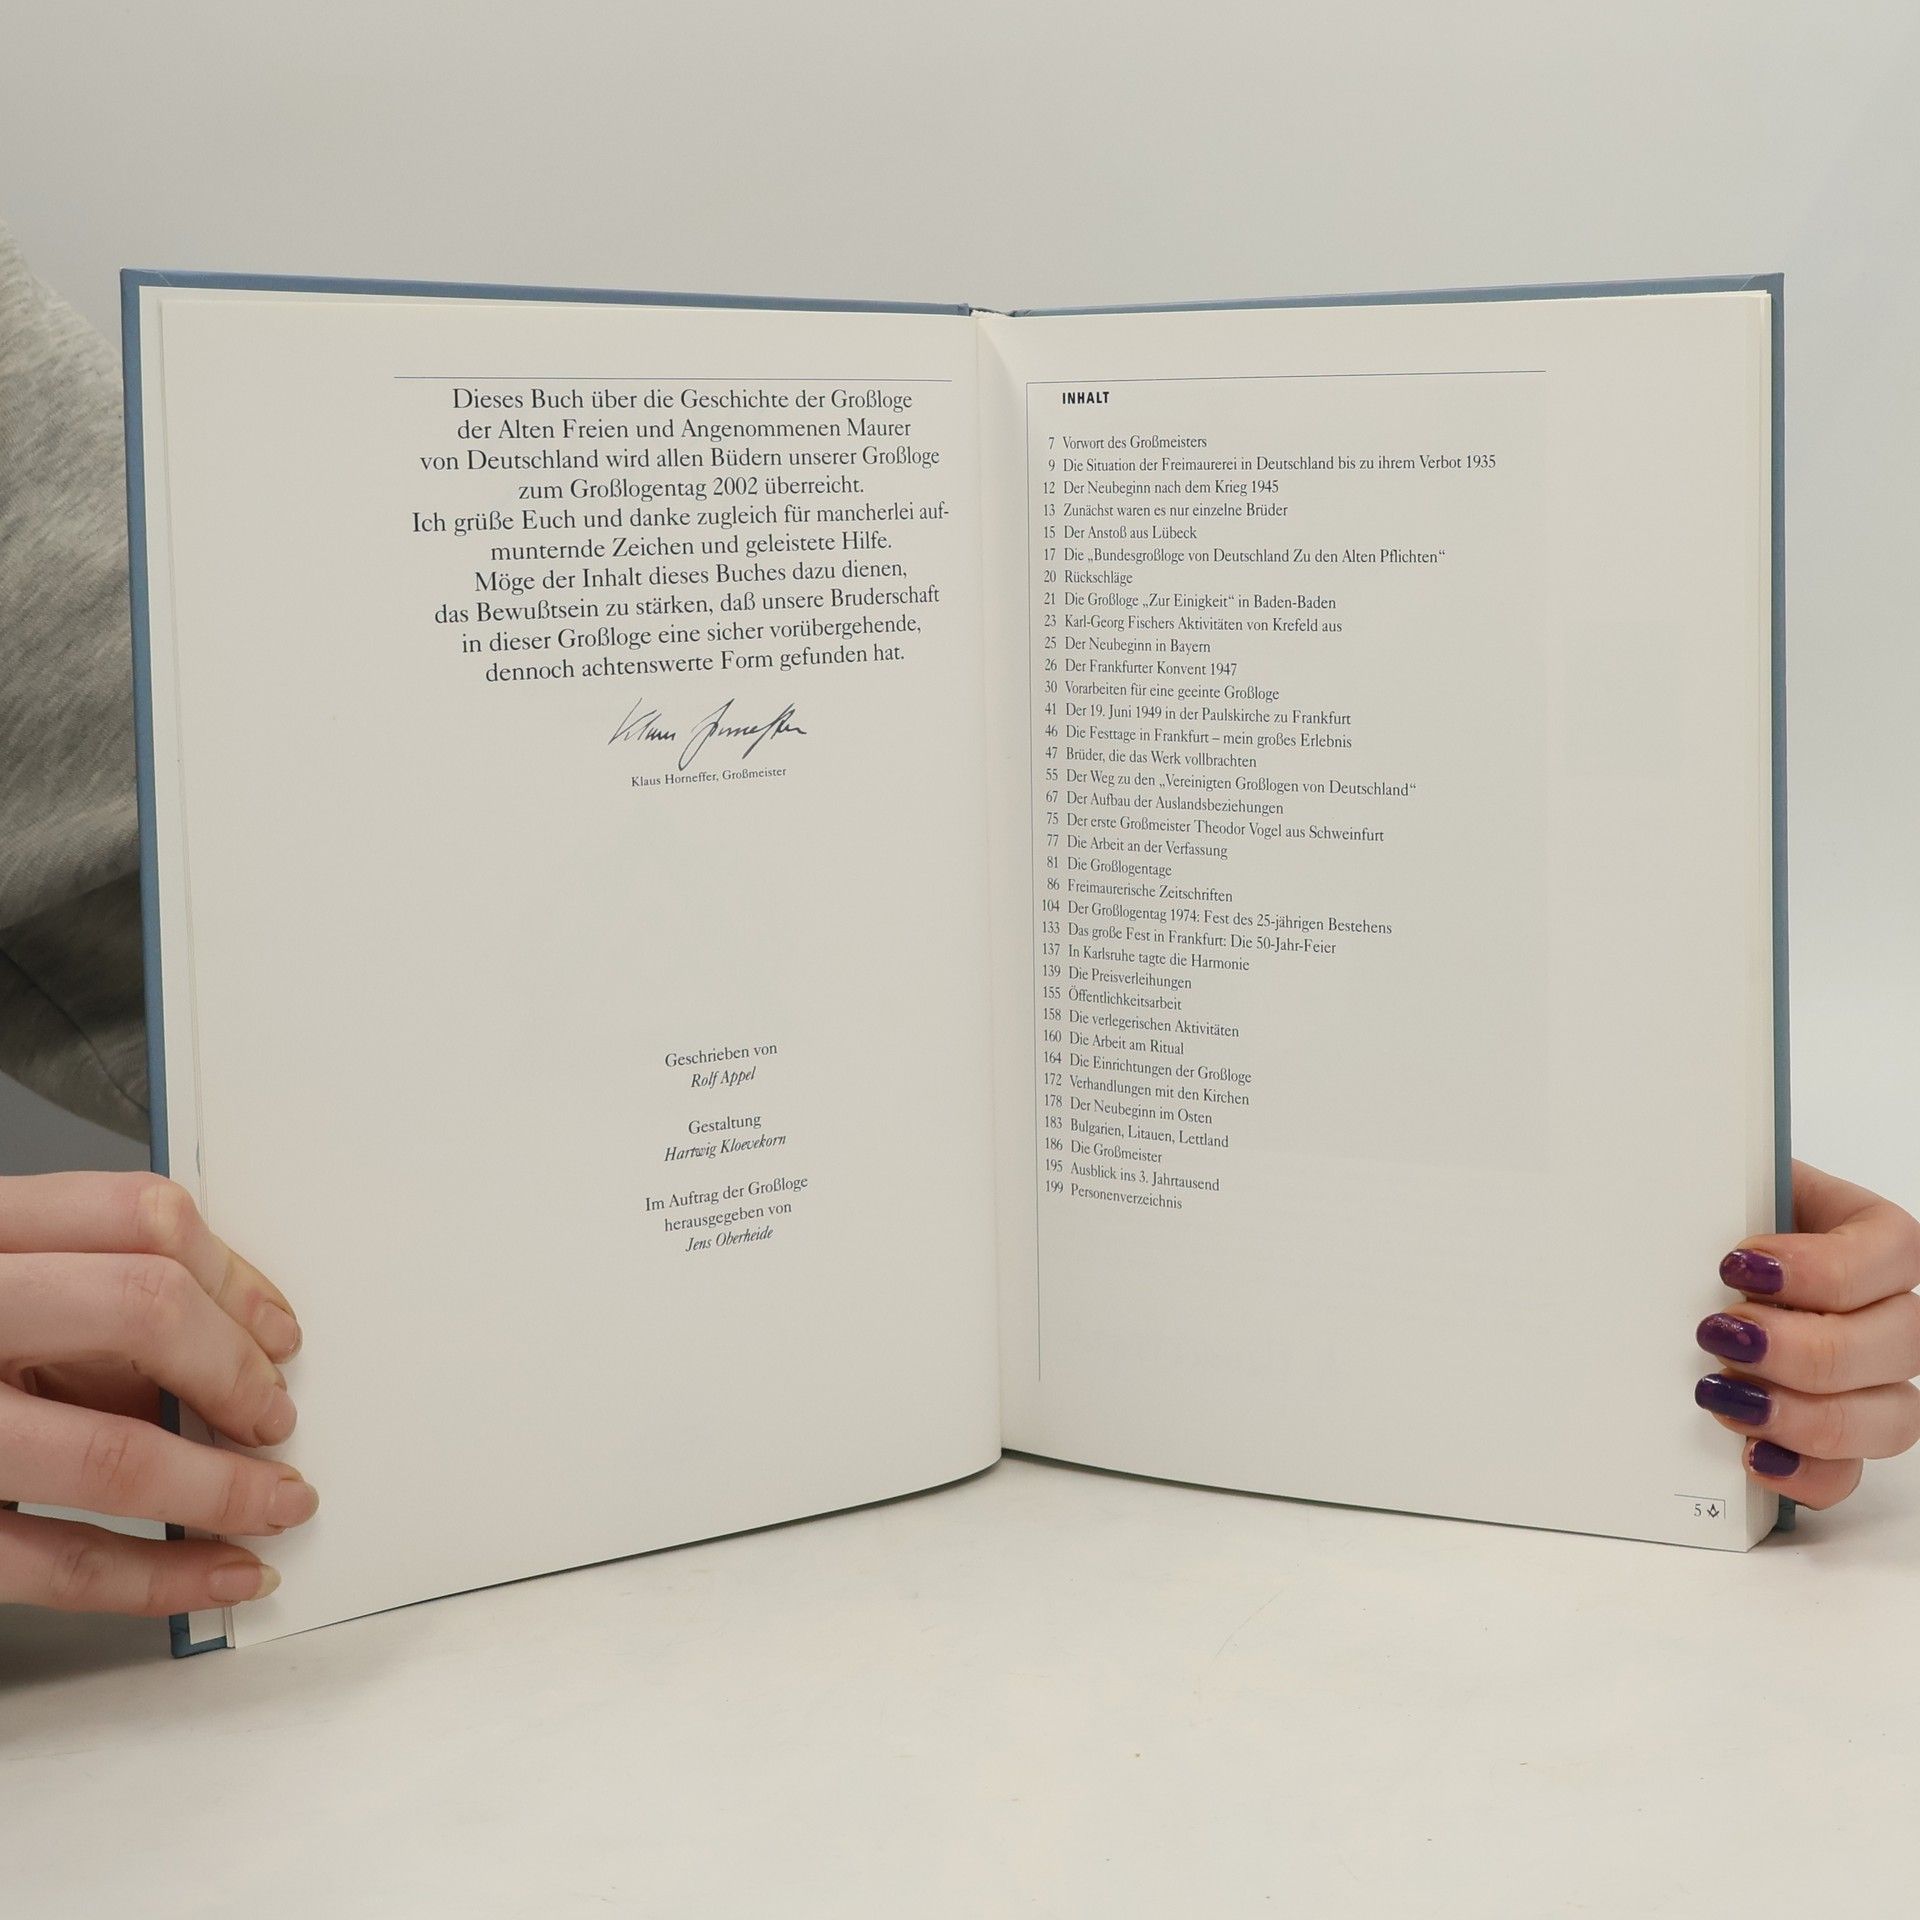 Dieses Buch über die Geschichte der Großloge
der Alten Freien und Angenommenen Maurer
von Deutschland wird allen Büdern unserer Großloge
zum Großlogentag 2002 überreicht.
Ich grüße Euch und danke zugleich für mancherlei auf-
munternde Zeichen und geleistete Hilfe.
Möge der Inhalt dieses Buches dazu dienen,
das Bewußtsein zu stärken, daß unsere Bruderschaft
in dieser Großloge eine sicher vorübergehende,
dennoch achtenswerte Form gefunden hat.
Klaus Horneffer
Klaus Horneffer, Großmeister
Geschrieben von
Rolf Appel
Gestaltung
Hartwig Kloevekorn
Im Auftrag der Großloge
herausgegeben von
Jens Oberheide
INHALT
7 Vorwort des Großmeisters
9 Die Situation der Freimaurerei in Deutschland bis zu ihrem Verbot 1935
12 Der Neubeginn nach dem Krieg 1945
13 Zunächst waren es nur einzelne Brüder
15 Der Anstoß aus Lübeck
17 Die „Bundesgroßloge von Deutschland Zu den Alten Pflichten“
20 Rückschläge
21 Die Großloge „Zur Einigkeit“ in Baden-Baden
23 Karl-Georg Fischers Aktivitäten von Krefeld aus
25 Der Neubeginn in Bayern
26 Der Frankfurter Konvent 1947
30 Vorarbeiten für eine geeinte Großloge
41 Der 19. Juni 1949 in der Paulskirche zu Frankfurt
46 Die Festtage in Frankfurt – mein großes Erlebnis
47 Brüder, die das Werk vollbrachten
55 Der Weg zu den „Vereinigten Großlogen von Deutschland“
67 Der Aufbau der Auslandsbeziehungen
75 Der erste Großmeister Theodor Vogel aus Schweinfurt
77 Die Arbeit an der Verfassung
81 Die Großlogentage
86 Freimaurerische Zeitschriften
104 Der Großlogentag 1974: Fest des 25-jährigen Bestehens
133 Das große Fest in Frankfurt: Die 50-Jahr-Feier
137 In Karlsruhe tagte die Harmonie
139 Die Preisverleihungen
155 Öffentlichkeitsarbeit
158 Die verlegerischen Aktivitäten
160 Die Arbeit am Ritual
164 Die Einrichtungen der Großloge
172 Verhandlungen mit den Kirchen
178 Der Neubeginn im Osten
183 Bulgarien, Litauen, Lettland
186 Die Großmeister
195 Ausblick ins 3. Jahrtausend
199 Personenverzeichnis
5